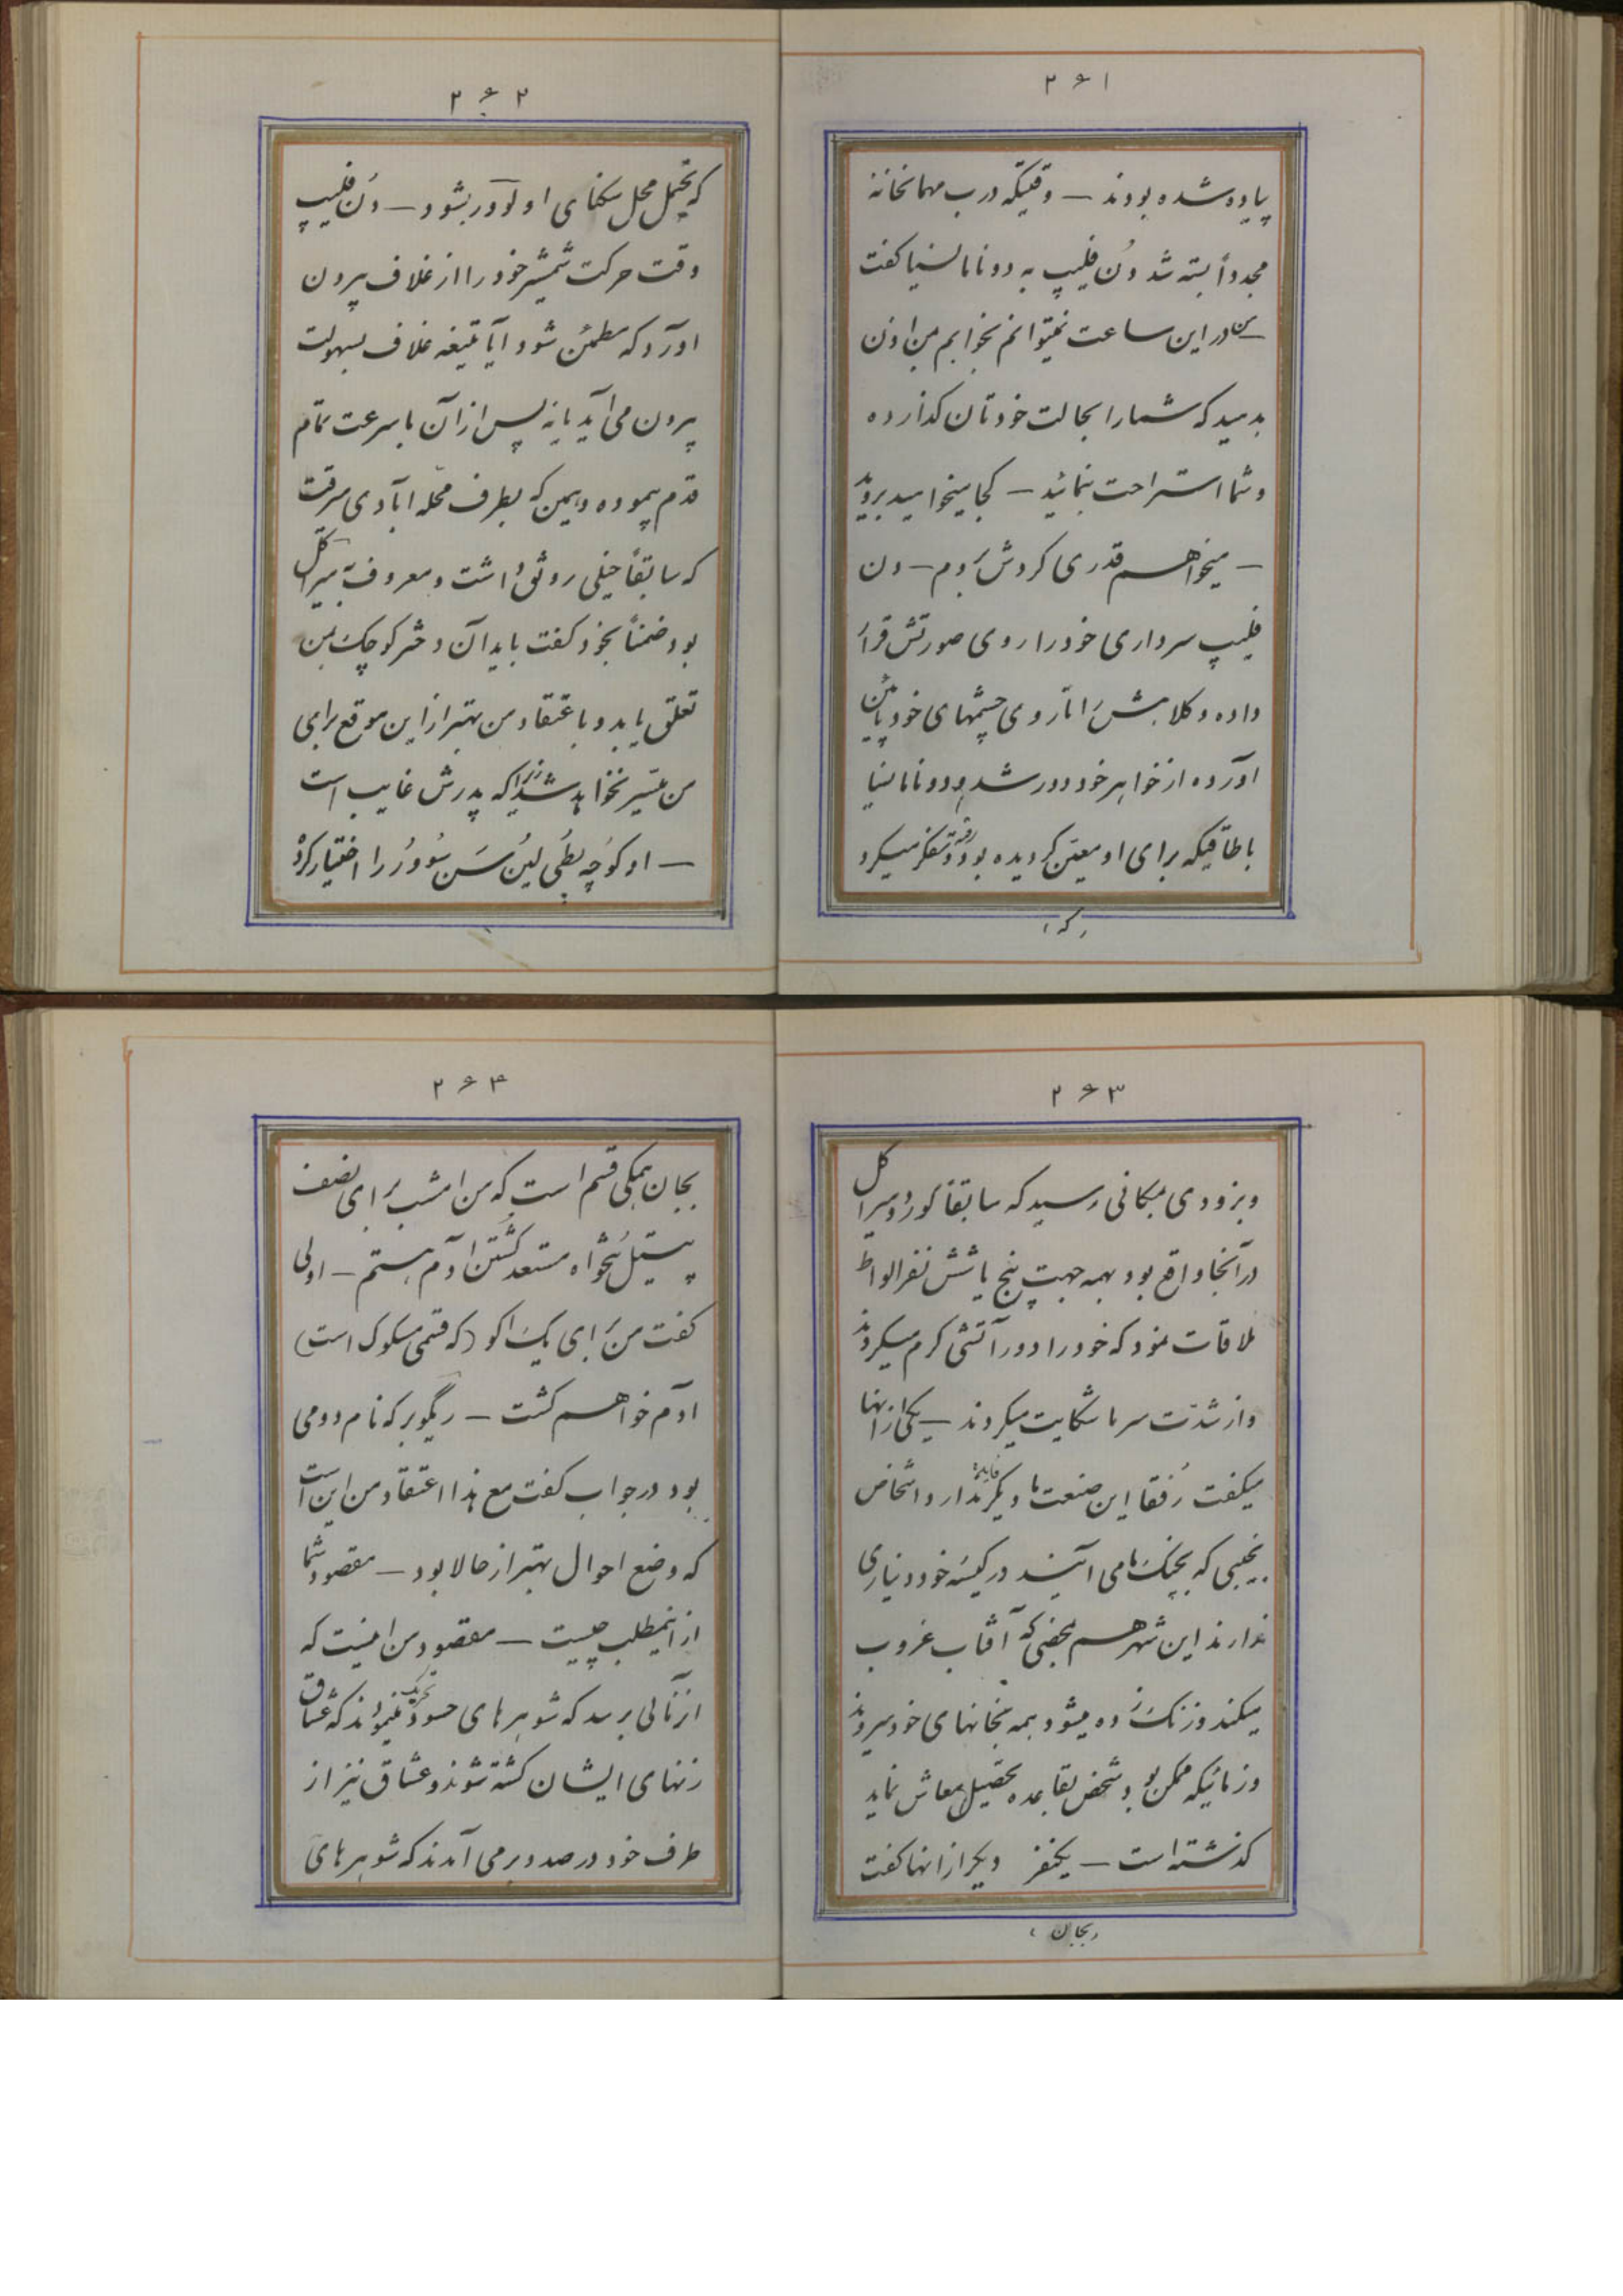 ۲۶۱
پیاده شده بودند – وقتیکه درب مهمانخانه
مجدداً بسته شد دُن فلیپ به دونا مانسیا کفت
من در این ساعت نمیتوانم بخوابم من اذن
بدهید که شما را بحالت خودتان کذارده
و شما استراحت بنمائید – کجا میخواهید بروید
– میخواهم قدری کردش روم – دن
فلیپ سرداری خود را روی صورتش قرار
داده و کلاهش را تا روی چشمهای خود پائین
آورده از خواهر خود دور شد و دونا مانسیا
باطاقیکه برای او معین کردیده بود رفته و تفکر میکرد
(که)
۲۶۲
که محل سکنای او لوور بشود – دُن فلیپ
وقت حرکت شمشیر خود را از غلاف بیرون
آورد که مطمئن شود آیا تیغه غلاف بسهولت
بیرون می آید یا نه پس از آن با سرعت تمام
قدم پیموده و همین که بطرف محله آبادی میرفت
که سابقاً خیلی رونق داشت و معروف به میراکل
بود ضمناً بخود کفت باید آن دختر کوچک بمن
تعلق یابد و باعتقاد من بهتر از این موقع برای
من میسر نخواهد شد زیرا که پدرش غایب است
– او کوچه سَن سُوور را اختیار کرد
۲۶۳
و بزودی بمکانی رسید که سابقاً کور دو میراکل
در آنجا واقع بود بهمه جهت پنج یا شش نفر الواط
ملاقات نمود که خود را دور آتشی کرم میکردند
و از شدّت سرما شکایت میکردند – یکی از آنها
میکفت رُفقا این صنعت ما دیکر فایده ندارد اشخاص
نجیبی که بچنک ما می آیند در کیسه خود دیناری
ندارند این شهر هم بمحض که آفتاب غروب
میکند و زنک زده میشود همه بخانهای خود میروند
و زمانیکه ممکن بود شخص بقاعده تحصیل معاش نماید
کذشته است – یکنفر دیکر از آنها کفت
(بجان)
۲۶۴
بجان همکی قسم است که من امشب برای نصف
پیستل بُخواه مستعد کُشتن آدم هستم – اولی
کفت من برای یک اکو (که قسمی مسکوک است)
آدم خواهم کشت – ریکوبر که نام دومی
بود در جواب کفت مع هذا اعتقاد من این است
که وضع احوال بهتر از حالا بود – مقصود شما
از اینمطلب چیست – مقصود من اینست که
از آنالی برسد که شوهرهای حسود تحریک مینمودند که عشاق
زنهای ایشان کشته شوند و عشاق نیز از
طرف خود در صدد بر می آمدند که شوهرهای